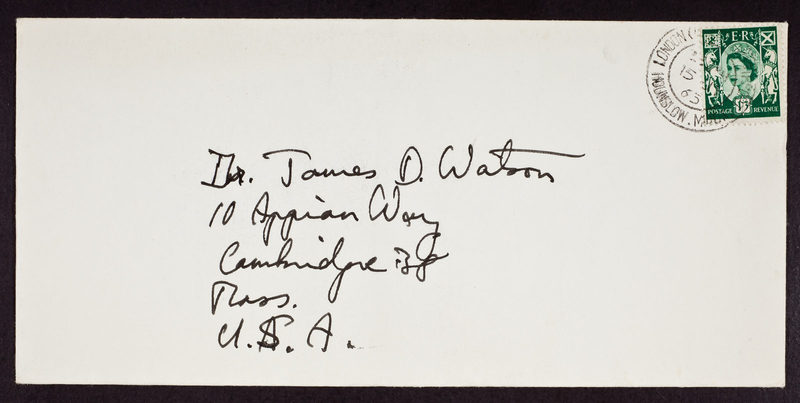 LONDON
HOUNSLOW. MIDD
63
E·R
POSTAGE 1/3 REVENUE
Dr. James D. Watson
10 Appian Way
Cambridge 38
Mass.
U.S.A.